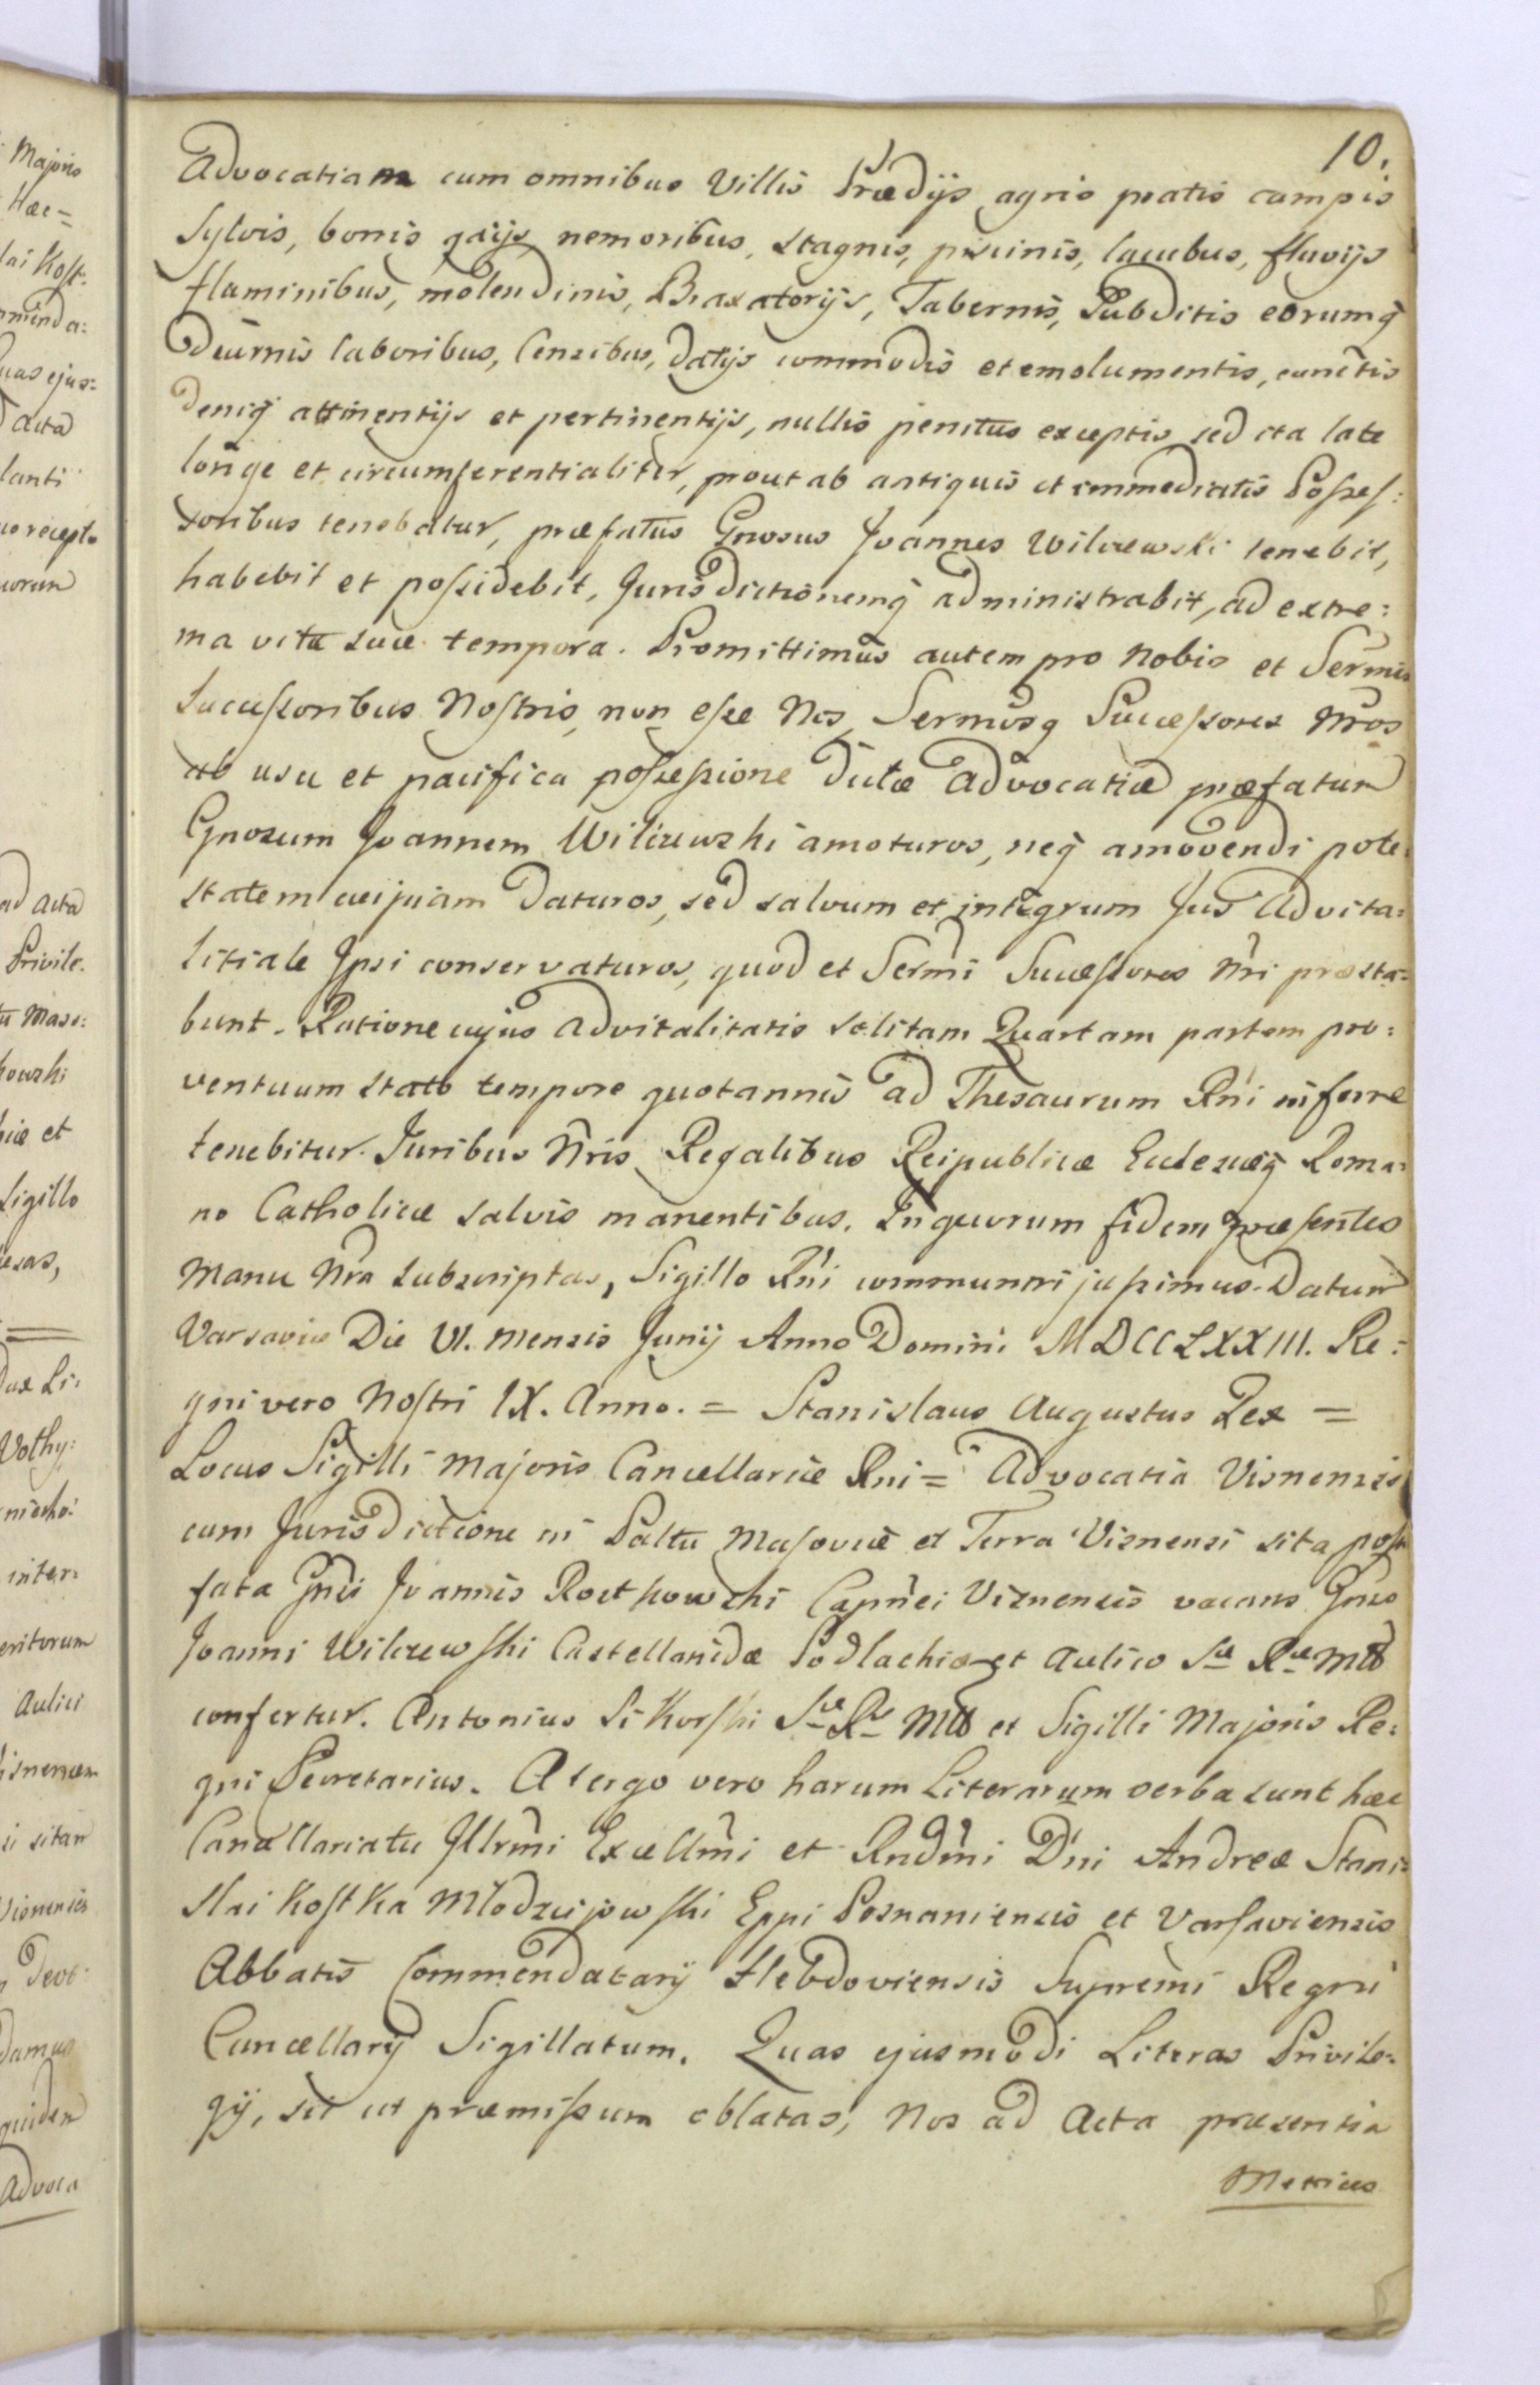 10.
Advocatiam cum omnibus Villis Prædijs agris pratis campis
Sylvis, borris gajis nemoribus, stagnis, piscinis, lacubus, fluvijs
fluminibus, molendinis, Braxatorijs, Tabernis, Subditis eorumq̃
diurnis laboribus, Censibus, datijs commodis et emolumentis, cunctis
deniq̃ attinentijs et pertinentijs, nullis penitus exceptis sed ita late
longe et circumferentialiter, prout ab antiquis et immediatis Posses:
soribus tenebatur, præfatus Gnosus Joannes Wilczewski tenebit,
habebit et possidebit, Jurisdictionemq̃ administrabit, ad extre:
ma vitæ suæ tempora. Promittimus autem pro Nobis et Sermis
Successoribus Nostris, non esse Nos, Sermosq Successores Nros
ab usu et pacifica possessione dictæ Advocatiæ præfatum
Gnosum Joannem Wilczewski amoturos, neq̃ amovendi pote:
statem cuipiam daturos, sed salvum et integrum Jus Advita:
litiale Ipsi conservaturos, quod et Sermi Successores Nri præsta:
bunt. Ratione cujus advitalitatis solitam Quartam partem pro:
ventuum stato tempore quotannis ad Thesaurum Rni inferre
tenebitur. Juribus Nris Regalibus Reipublicæ Eccleziæq̃ Roma:
no Catholicæ salvis manentibus. In quorum fidem præsentes
Manu Nra subscriptas, Sigillo Rni communiri jussimus. Datum
Varsaviæ Die VI. mensis Junij Anno Domini MDCCLXXIII. Re:
gni vero Nostri IX. Anno. = Stanislaus Augustus Rex =
Locus Sigilli Majoris Cancellariæ Rni = Advocatia Visnensis
cum Jurisdictione in Palttu Masoviæ et Terra Visnensi sita post
fata Gnsi Joannis Rostkowski Capnei Visnensis vacans Gnso
Joanni Wilczewski Castellanidæ Podlachiæ et Aulico Sæ Ræ Mtts
confertur. Antonius Sikorski Sæ Ræ Mtts et Sigilli Majoris Re:
gni Secretarius. A tergo vero harum Literarum verba sunt hæc
Cancellariatu Illrmi Excellmi et Rndmi Dni Andreæ Stani:
slai Kostka Młodziejowski Eppi Posnaniensis et Varsaviensis
Abbatis Commendatarij Hebdoviensis Supremi Regni
Cancellarij Sigillatum. Quas ejusmodi Literas Privile:
gij, sic ut præmissum oblatas, Nos ad Acta præsentia
Metrices
Majoris
Hæc=
lai Kost:
menda:
uas ejus:
Acta
lanti
recept
orum
ad Acta
Privile.
Maso:
kowski
et
Sigillo
Aulici
si sitam
Damus
quidem
Advoca